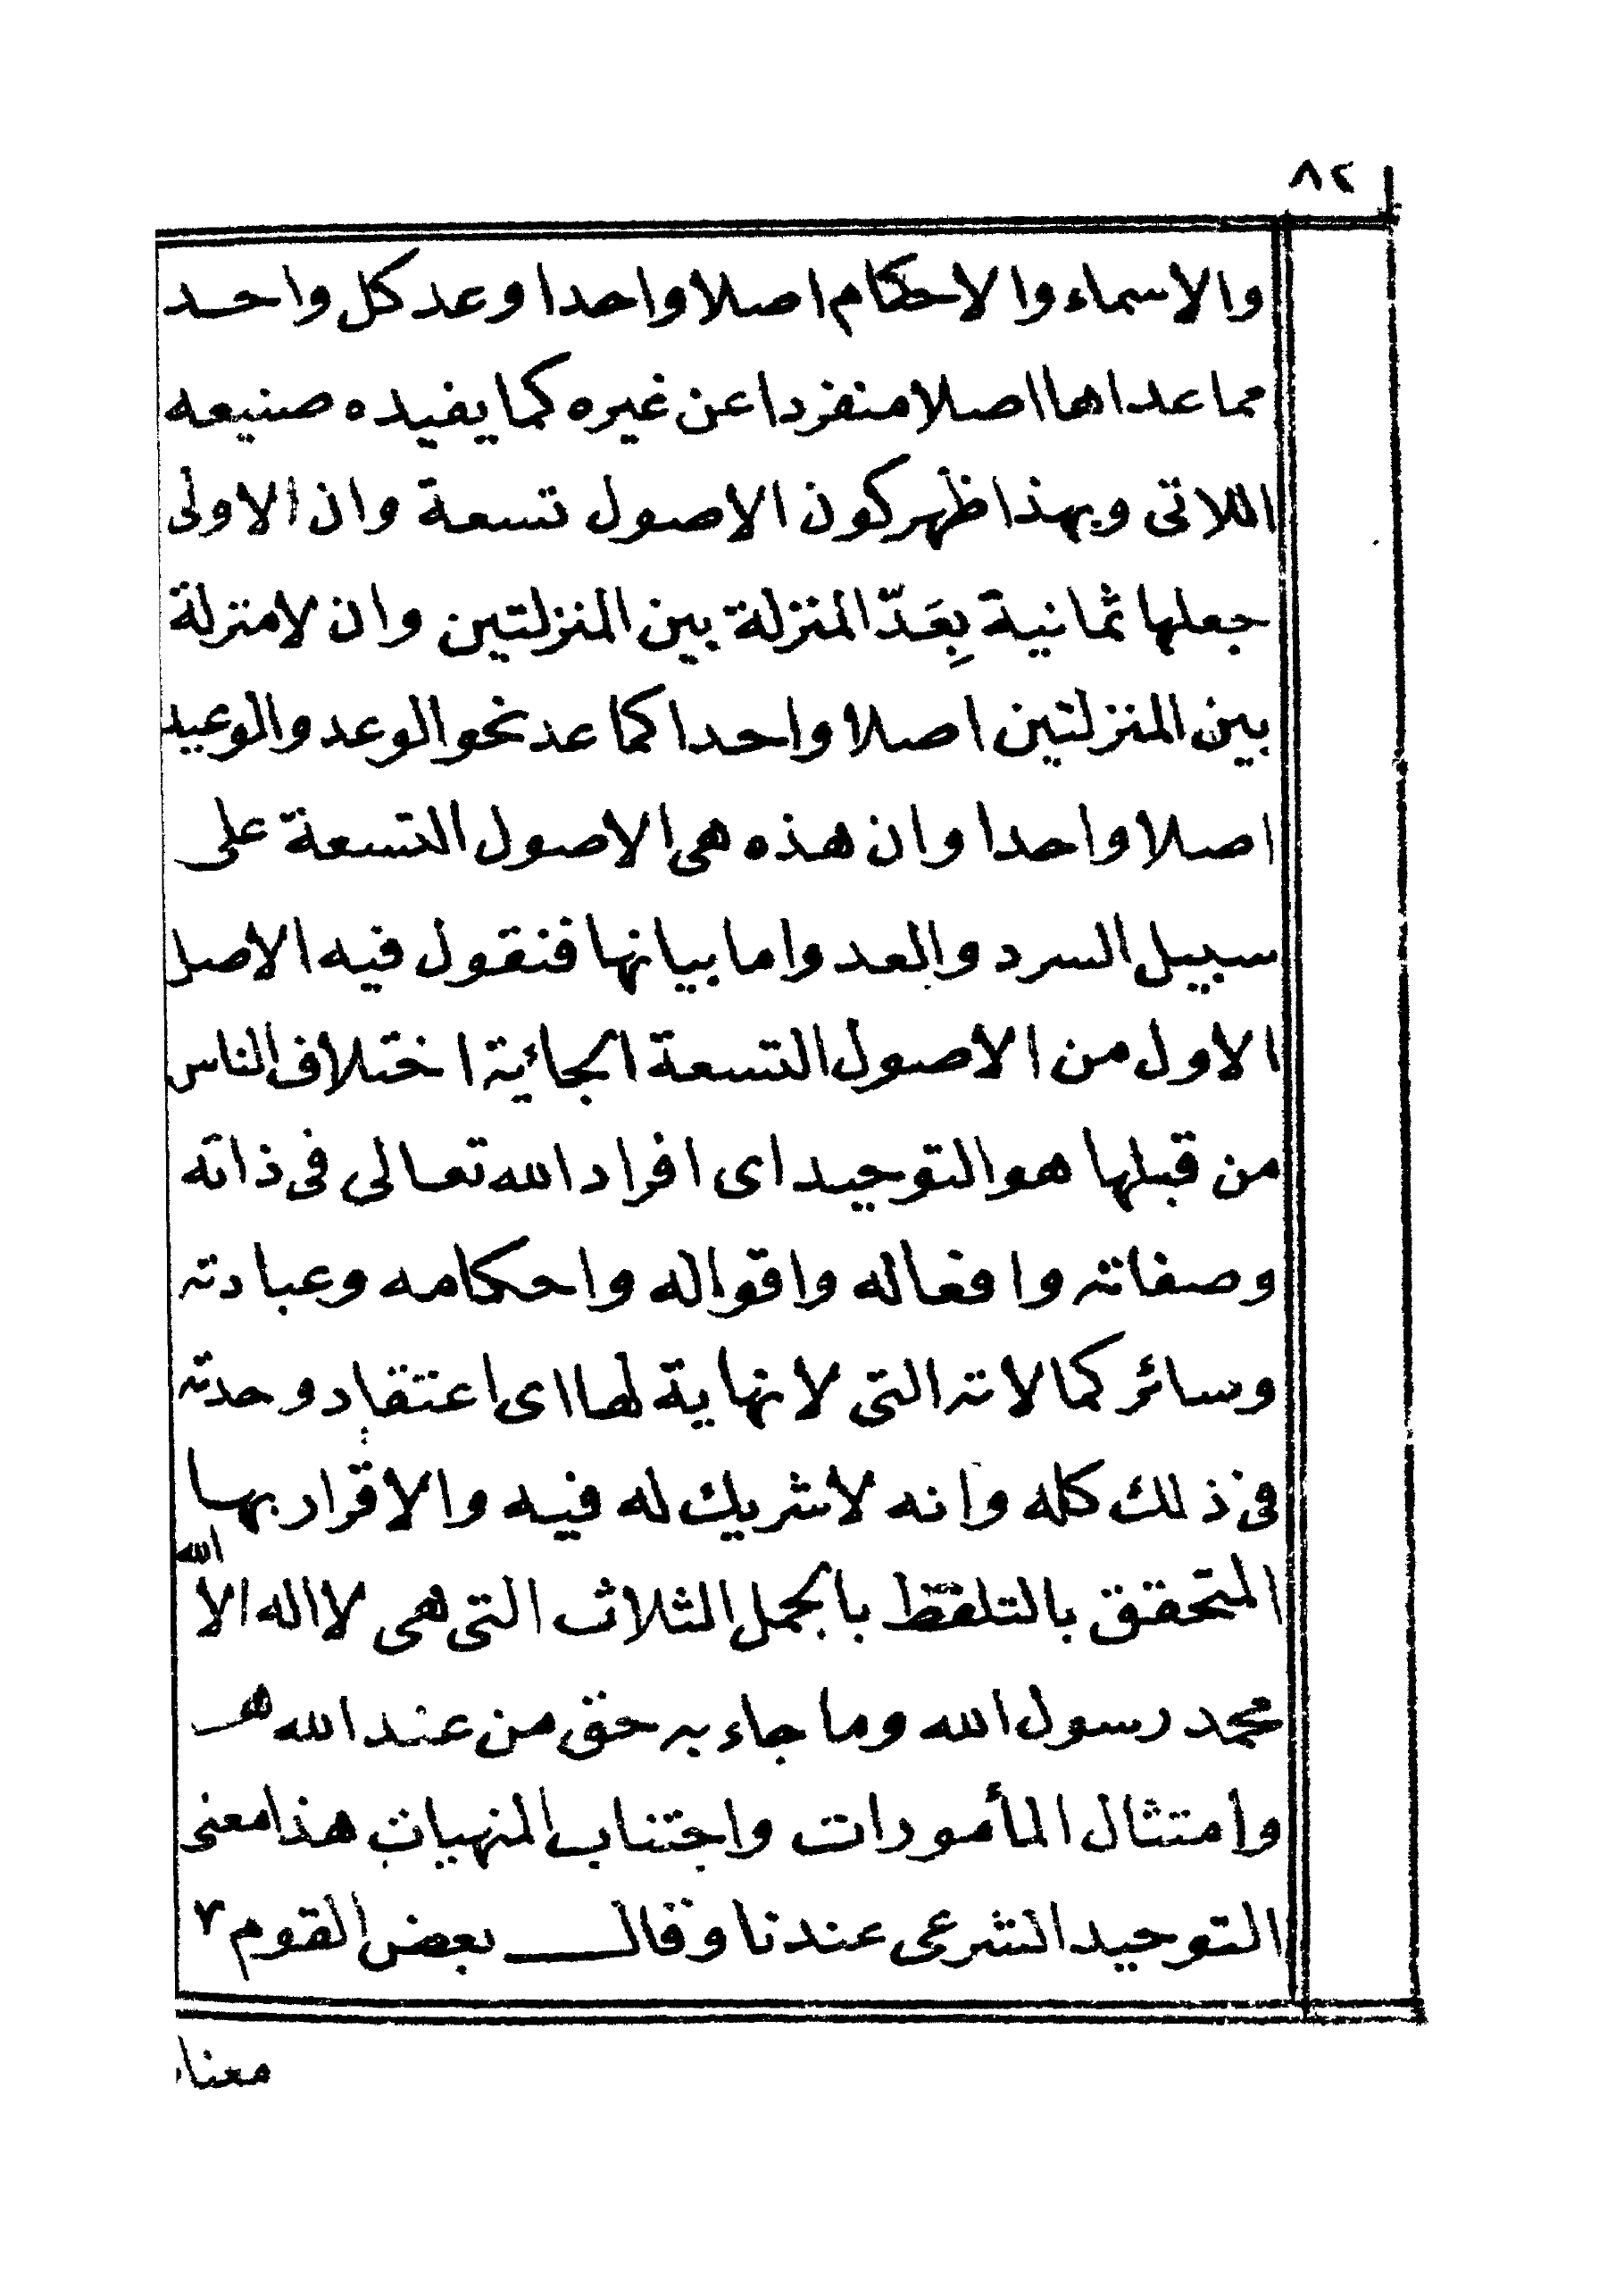 ٨٢
والاسماء والاحكام اصلا واحدا وعد كل واحد
مما عداها اصلا منفردا عن غيره كما يفيده صنيعه
اللاتى وبهذا ظهر كون الاصول تسعة وان الاولى
جعلها ثمانية بِعَدّ المنزلة بين المنزلتين وان لا منزلة
بين المنزلتين اصلا واحدا كما عد نحو الوعد والوعيد
اصلا واحدا وان هذه هى الاصول التسعة على
سبيل السرد والعد واما بيانها فنقول فيه الاصل
الاول من الاصول التسعة الجائية اختلاف الناس
من قبلها هو التوحيد اى افراد الله تعالى فى ذاته
وصفاته وافعاله واقواله واحكامه وعبادته
وسائر كمالاته التى لا نهاية لها اى اعتقاد وحدته
فى ذلك كله وانه لا شريك له فيه والاقرار بها
المتحقق بالتلفظ بالجمل الثلاث التى هى لا اله الا الله
محمد رسول الله وما جاء به حق من عند الله هـ
وامتثال المأمورات واجتناب المنهيات هذا معنى
التوحيد الشرعى عندنا وقال بعض القوم ٧
معناه